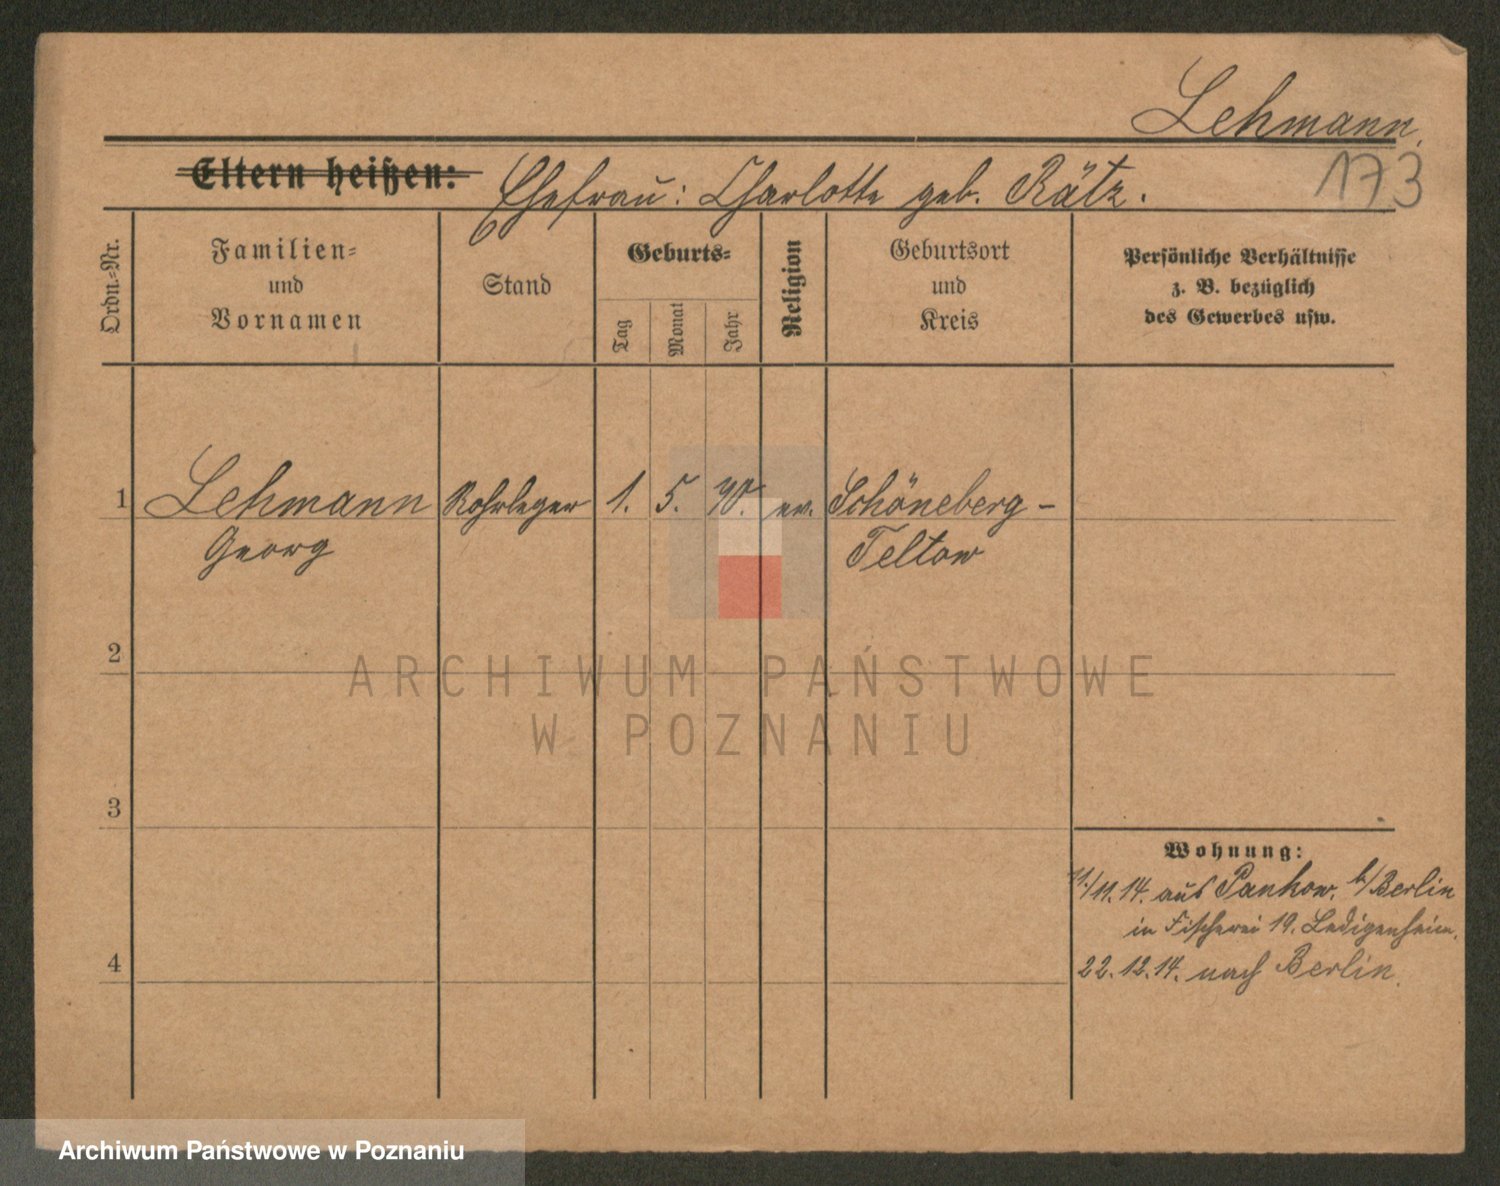 Lehmann.
173
Eltern heißen: Ehefrau: Charlotte geb. Rätz.
Ordn.=Nr.
Familien=
und
Vornamen
Stand
Geburts=
Tag
Monat
Jahr
Religion
Geburtsort
und
Kreis
Persönliche Verhältnisse
z. B. bezüglich
des Gewerbes usw.
1 Lehmann Rohrleger 1. 5. 90. ev. Schöneberg -
Georg Teltow
2
ARCHIWUM PAŃSTWOWE
W POZNANIU
3
Wohnung:
11./11.14. aus Pankow. b/Berlin
in Fischerei 19. Ledigenheim.
4
22.12.14. nach Berlin.
Archiwum Państwowe w Poznaniu